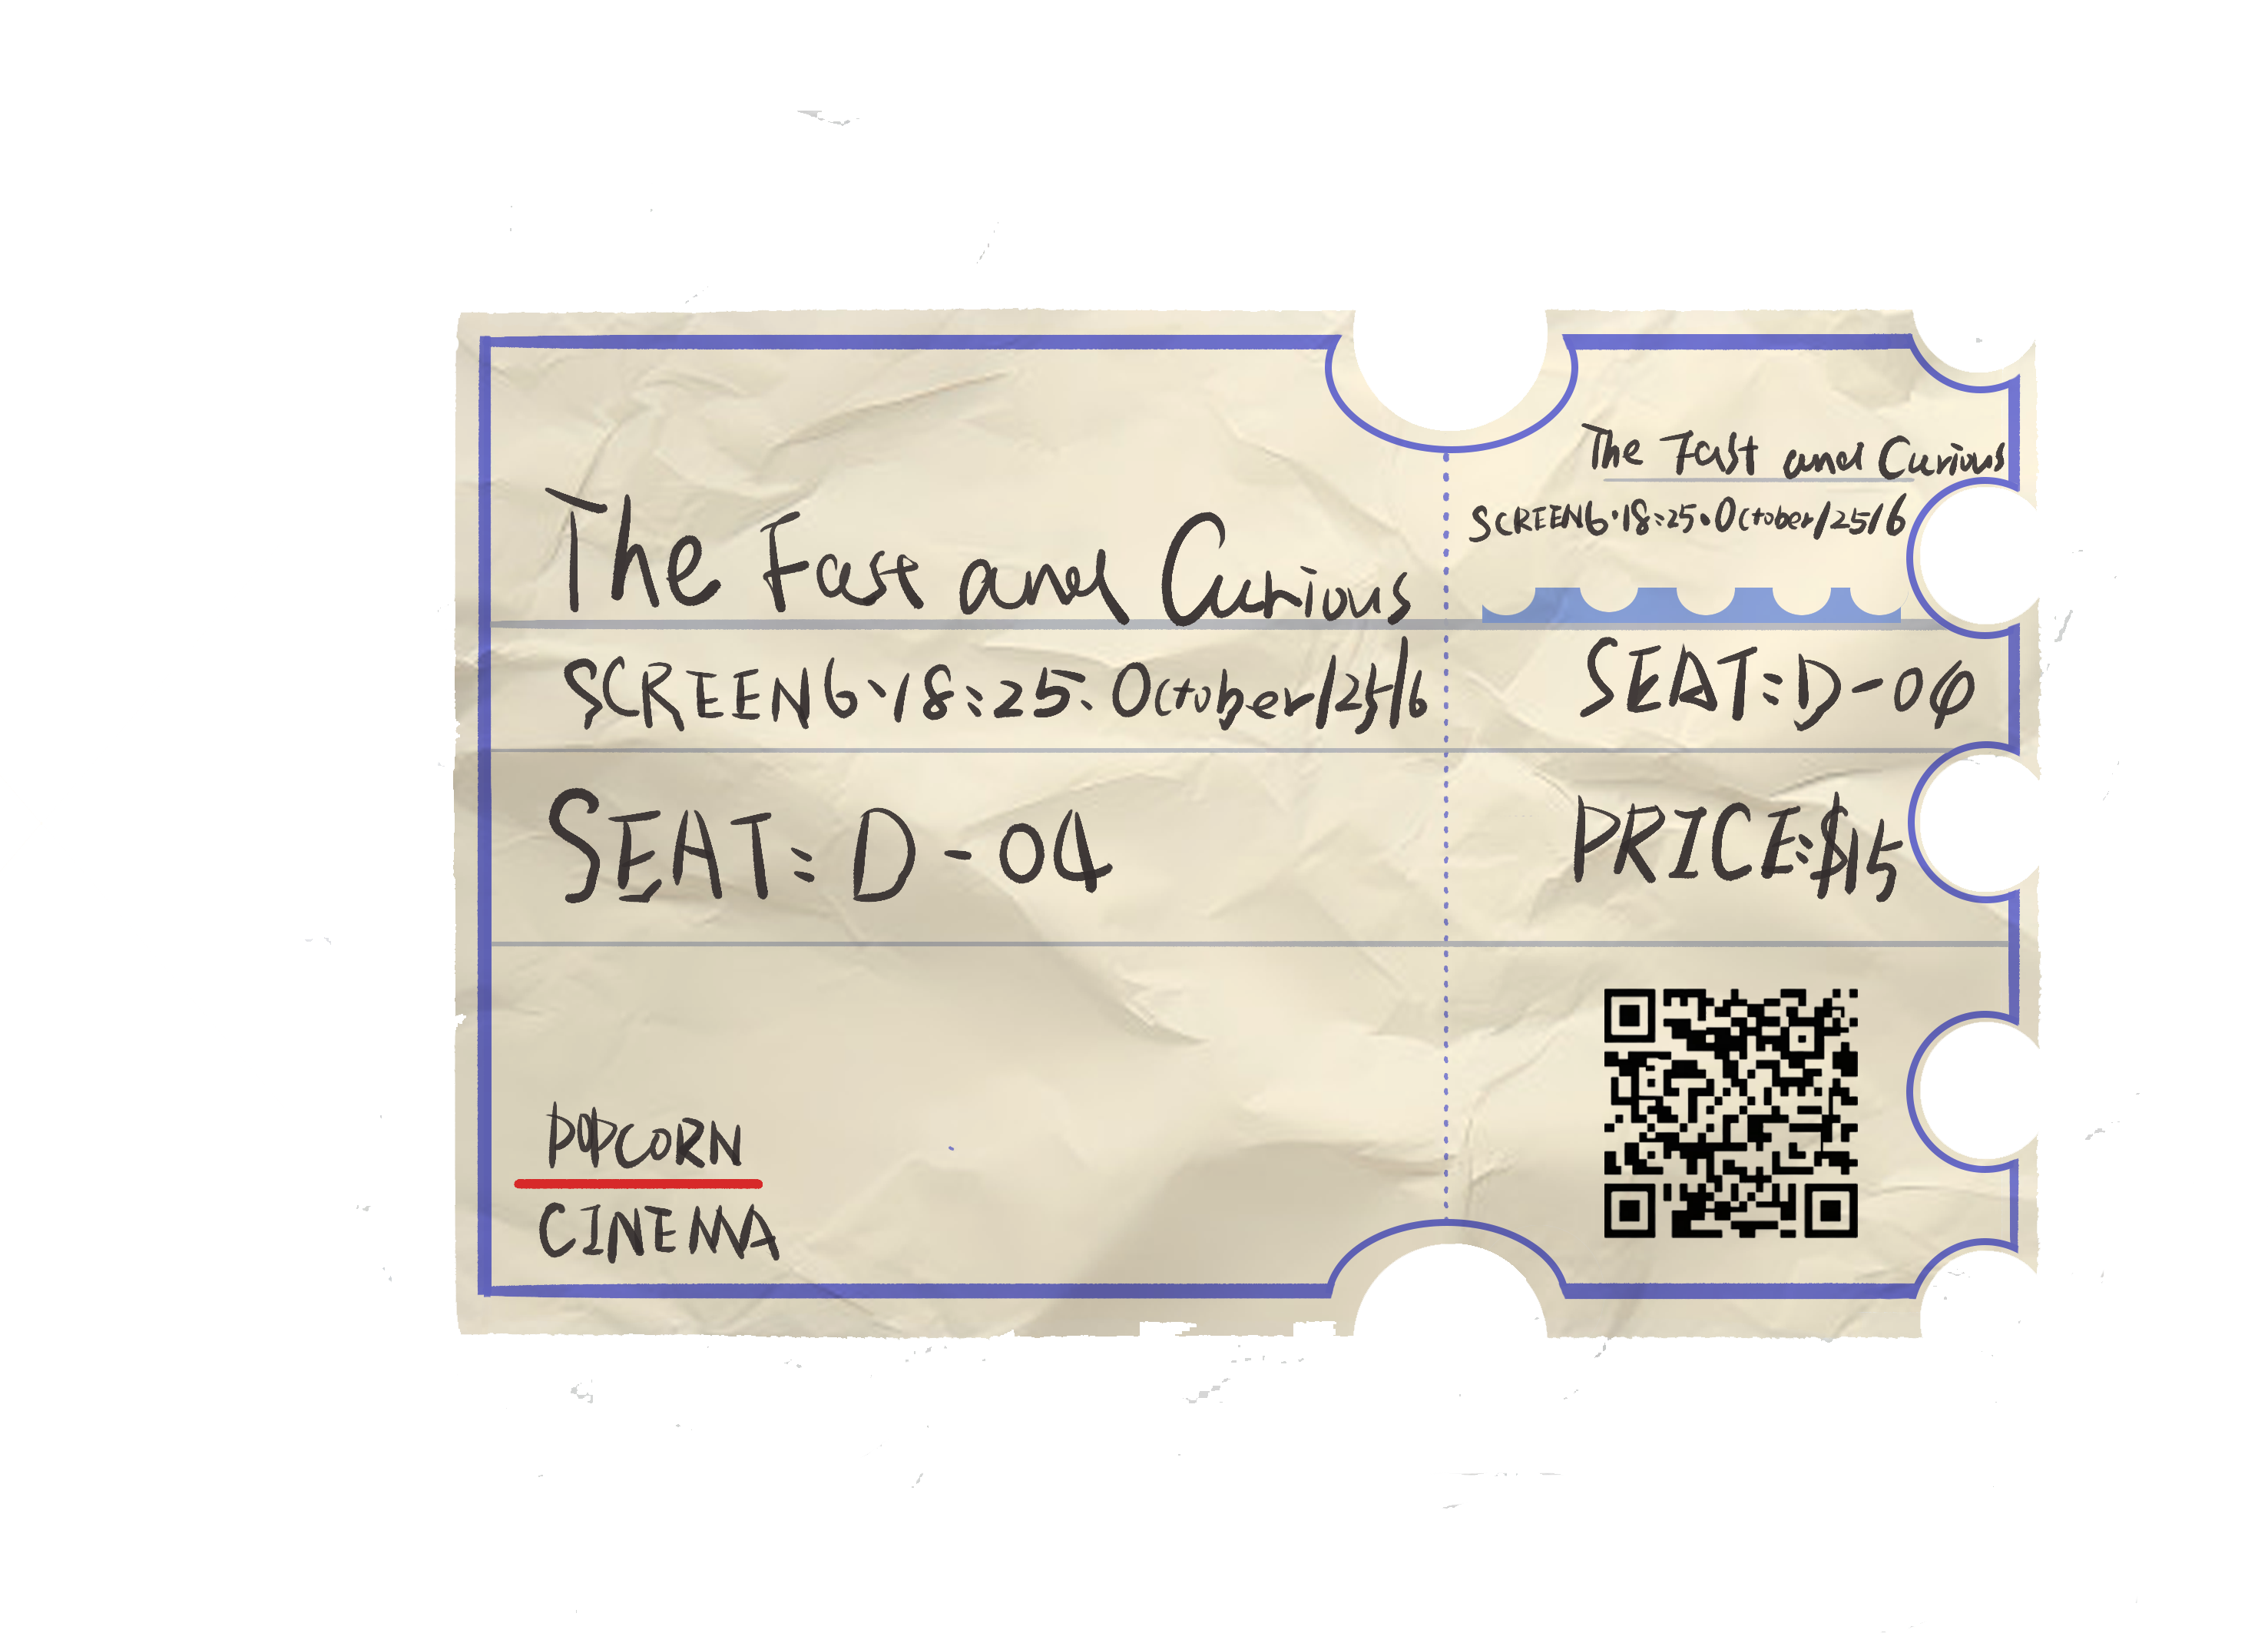 The Fast and Curious
SCREEN6·18:25·October/25/6
SEAT: D-04
POPCORN
CINEMA
The Fast and Curious
SCREEN6·18:25·October/25/6
SEAT:D-04
PRICE:$15